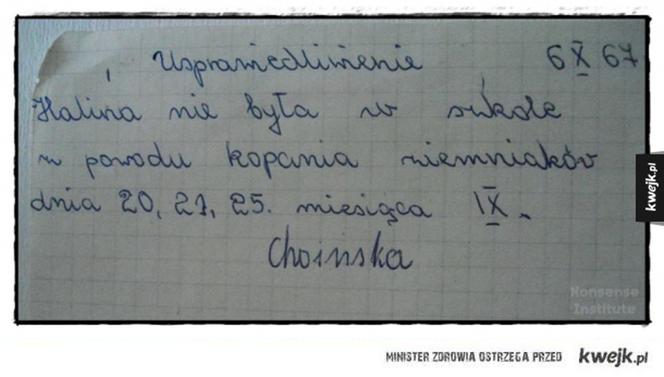 Usprawiedliwienie 6 X 67
Halina nie była w szkole
z powodu kopania ziemniaków
dnia 20, 21, 25. miesiąca IX.
Choinska
kwejk.pl
Nonsense
Institute
MINISTER ZDROWIA OSTRZEGA PRZED kwejk.pl